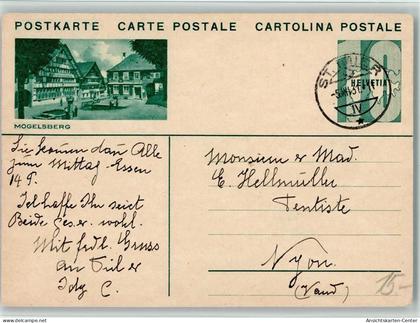 POSTKARTE CARTE POSTALE CARTOLINA POSTALE
MOGELSBERG
HELVETIA
10
IV
Sie kommen dann Alle
zum Mittag-Essen
14 P.
Ich hoffe Ihr seiet
Beide ges. u. wohl.
Mit frdl. Gruss
Monsieur & Mad.
E. Hellmüller
Dentiste
Nyon.
(Vaud)
15-
www.ansichtskartenversand.com
Ansichtskarten-Center